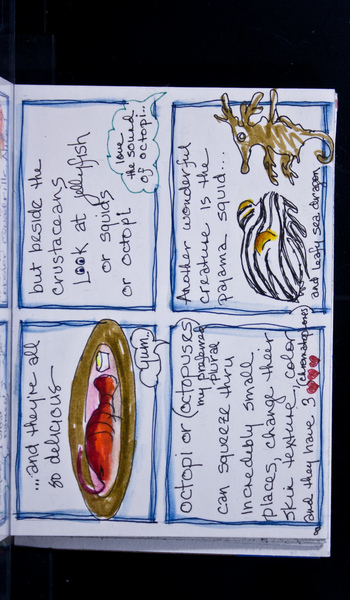 ...and they're all
so delicious
yum..
but beside the
crustaceans
Look at jellyfish
or squids
or octopi
I love
the sound
of octopi..
octopi or octopuses
my preferred
plural
can squeeze thru
incredibly small
places, change their
skin texture, color
(chromatophores)
and they have 3
Another wonderful
creature is the
pajama squid...
and leafy sea dragon